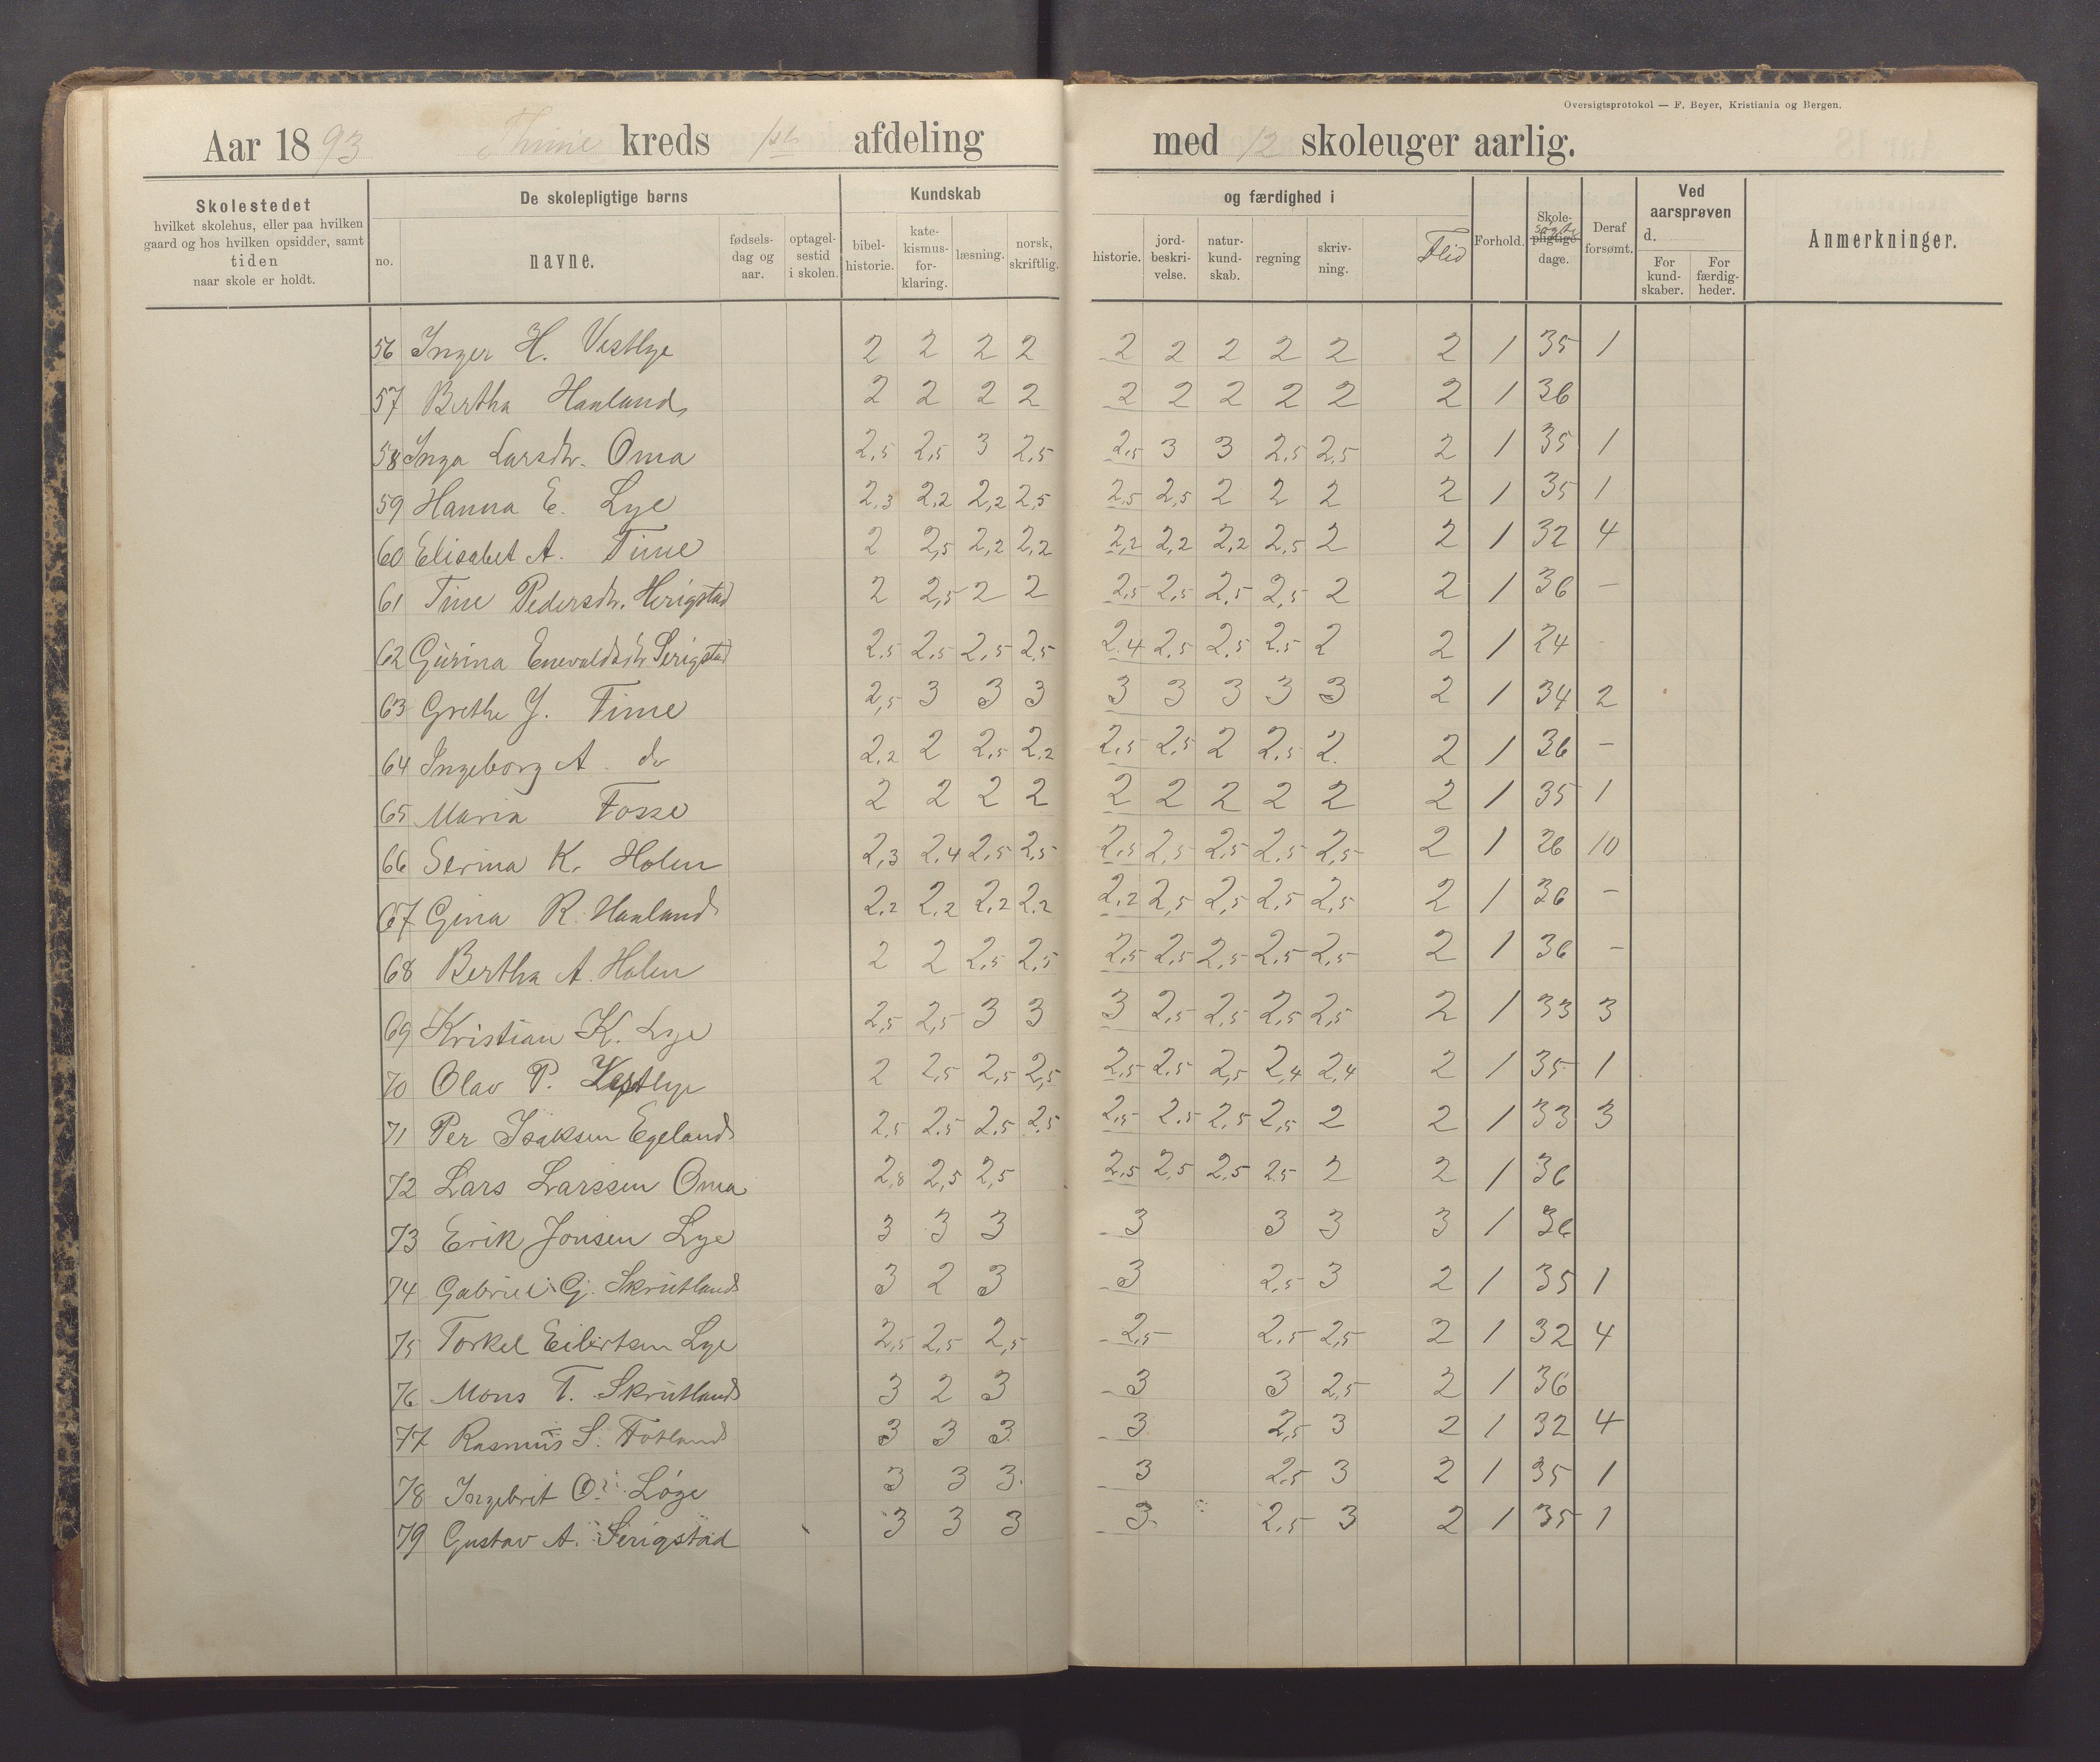 Oversigtsprotokol — F. Beyer, Kristiania og Bergen.
Aar 1893 Thime kreds 1ste afdeling med 12 skoleuger aarlig.
Skolestedet hvilket skolehus, eller paa hvilken gaard og hos hvilken opsidder, samt tiden naar skole er holdt.
De skolepligtige børns
no. navne. fødselsdag og aar. optagelsestid i skolen.
Kundskab og færdighed i
bibelhistorie. katekismusforklaring. læsning. norsk, skriftlig. historie. jordbeskrivelse. naturkundskab. regning skrivning. Flid
Forhold. Skolesøgte pligtige dage. Deraf forsømt.
Ved aarsprøven d.
For kundskaber. For færdigheder.
Anmerkninger.
56 Inger H. Vestlye 2 2 2 2 2 2 2 2 2 2 1 35 1
57 Bertha Haaland 2 2 2 2 2 2 2 2 2 2 1 36
58 Inga Larsdtr. Oma 2,5 2,5 3 2,5 2,5 3 3 2,5 2,5 2 1 35 1
59 Hanna E. Lye 2,3 2,2 2,2 2,5 2,5 2,5 2 2 2 2 1 35 1
60 Elisabet A. Time 2 2,5 2,2 2,2 2,2 2,2 2,2 2,5 2 2 1 32 4
61 Tine Pedersdtr. Herigstad 2 2,5 2 2 2,5 2,5 2,5 2,5 2 2 1 36 –
62 Gurina Enevaldsdtr Serigstad 2,5 2,5 2,5 2,5 2,4 2,5 2,5 2,5 2 2 1 24 -
63 Grethe J. Time 2,5 3 3 3 3 3 3 3 3 2 1 34 2
64 Ingeborg A. do 2,2 2 2,5 2,2 2,5 2,5 2 2,5 2. 2 1 36 –
65 Maria Fosse 2 2 2 2 2 2 2 2 2 2 1 35 1
66 Serina K. Holen 2,3 2,4 2,5 2,5 2,5 2,5 2,5 2,5 2,5 2 1 26 10
67 Gina R. Haaland 2,2 2,2 2,2 2,2 2,2 2,5 2,5 2,5 2,5 2 1 36 –
68 Bertha A. Holen 2 2 2,5 2,5 2,5 2,5 2,5 2,5 2,5 2 1 36 –
69 Kristian K. Lye 2,5 2,5 3 3 3 2,5 2,5 2,5 2,5 2 1 33 3
70 Olav P. Vestlye 2 2,5 2,5 2,5 2,5 2,5 2,5 2,4 2,4 2 1 35 1
71 Per Isaksen Egeland 2,5 2,5 2,5 2,5 2,5 2,5 2,5 2,5 2 2 1 33 3
72 Lars Larssen Oma 2,8 2,5 2,5 2,5 2,5 2,5 2,5 2 2 1 36
73 Erik Jonsen Lye 3 3 3 3 3 3 3 1 36
74 Gabriel G. Skrutland 3 2 3 3 2,5 3 2 1 35 1
75 Torkel Eilertsen Lye 2,5 2,5 2,5 2,5 2,5 2,5 2 1 32 4
76 Mons T. Skrutland 3 2 3 3 3 2,5 2 1 36
77 Rasmus S. Fotland 3 3 3 3 2,5 3 2 1 32 4
78 Ingebret O. Løge 3 3 3. 3 2,5 3 2 1 35 1
79 Gustav A. Serigstad 3 3 3 3. 2,5 3 2 1 35 1